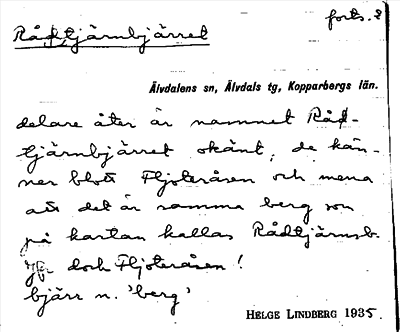 forts. 2
Rådtjärnbjärret
Älvdalens sn, Älvdals tg, Kopparbergs län.
delare åter är namnet Råd-
tjärnbjärret okänt, de kän-
ner blott Fljoteråsen och mena
att det är samma berg som
på kartan kallas Rådtjärnsb.
Jfr doch Fljoteråsen!
bjärr n. 'berg'
HELGE LINDBERG 1935.